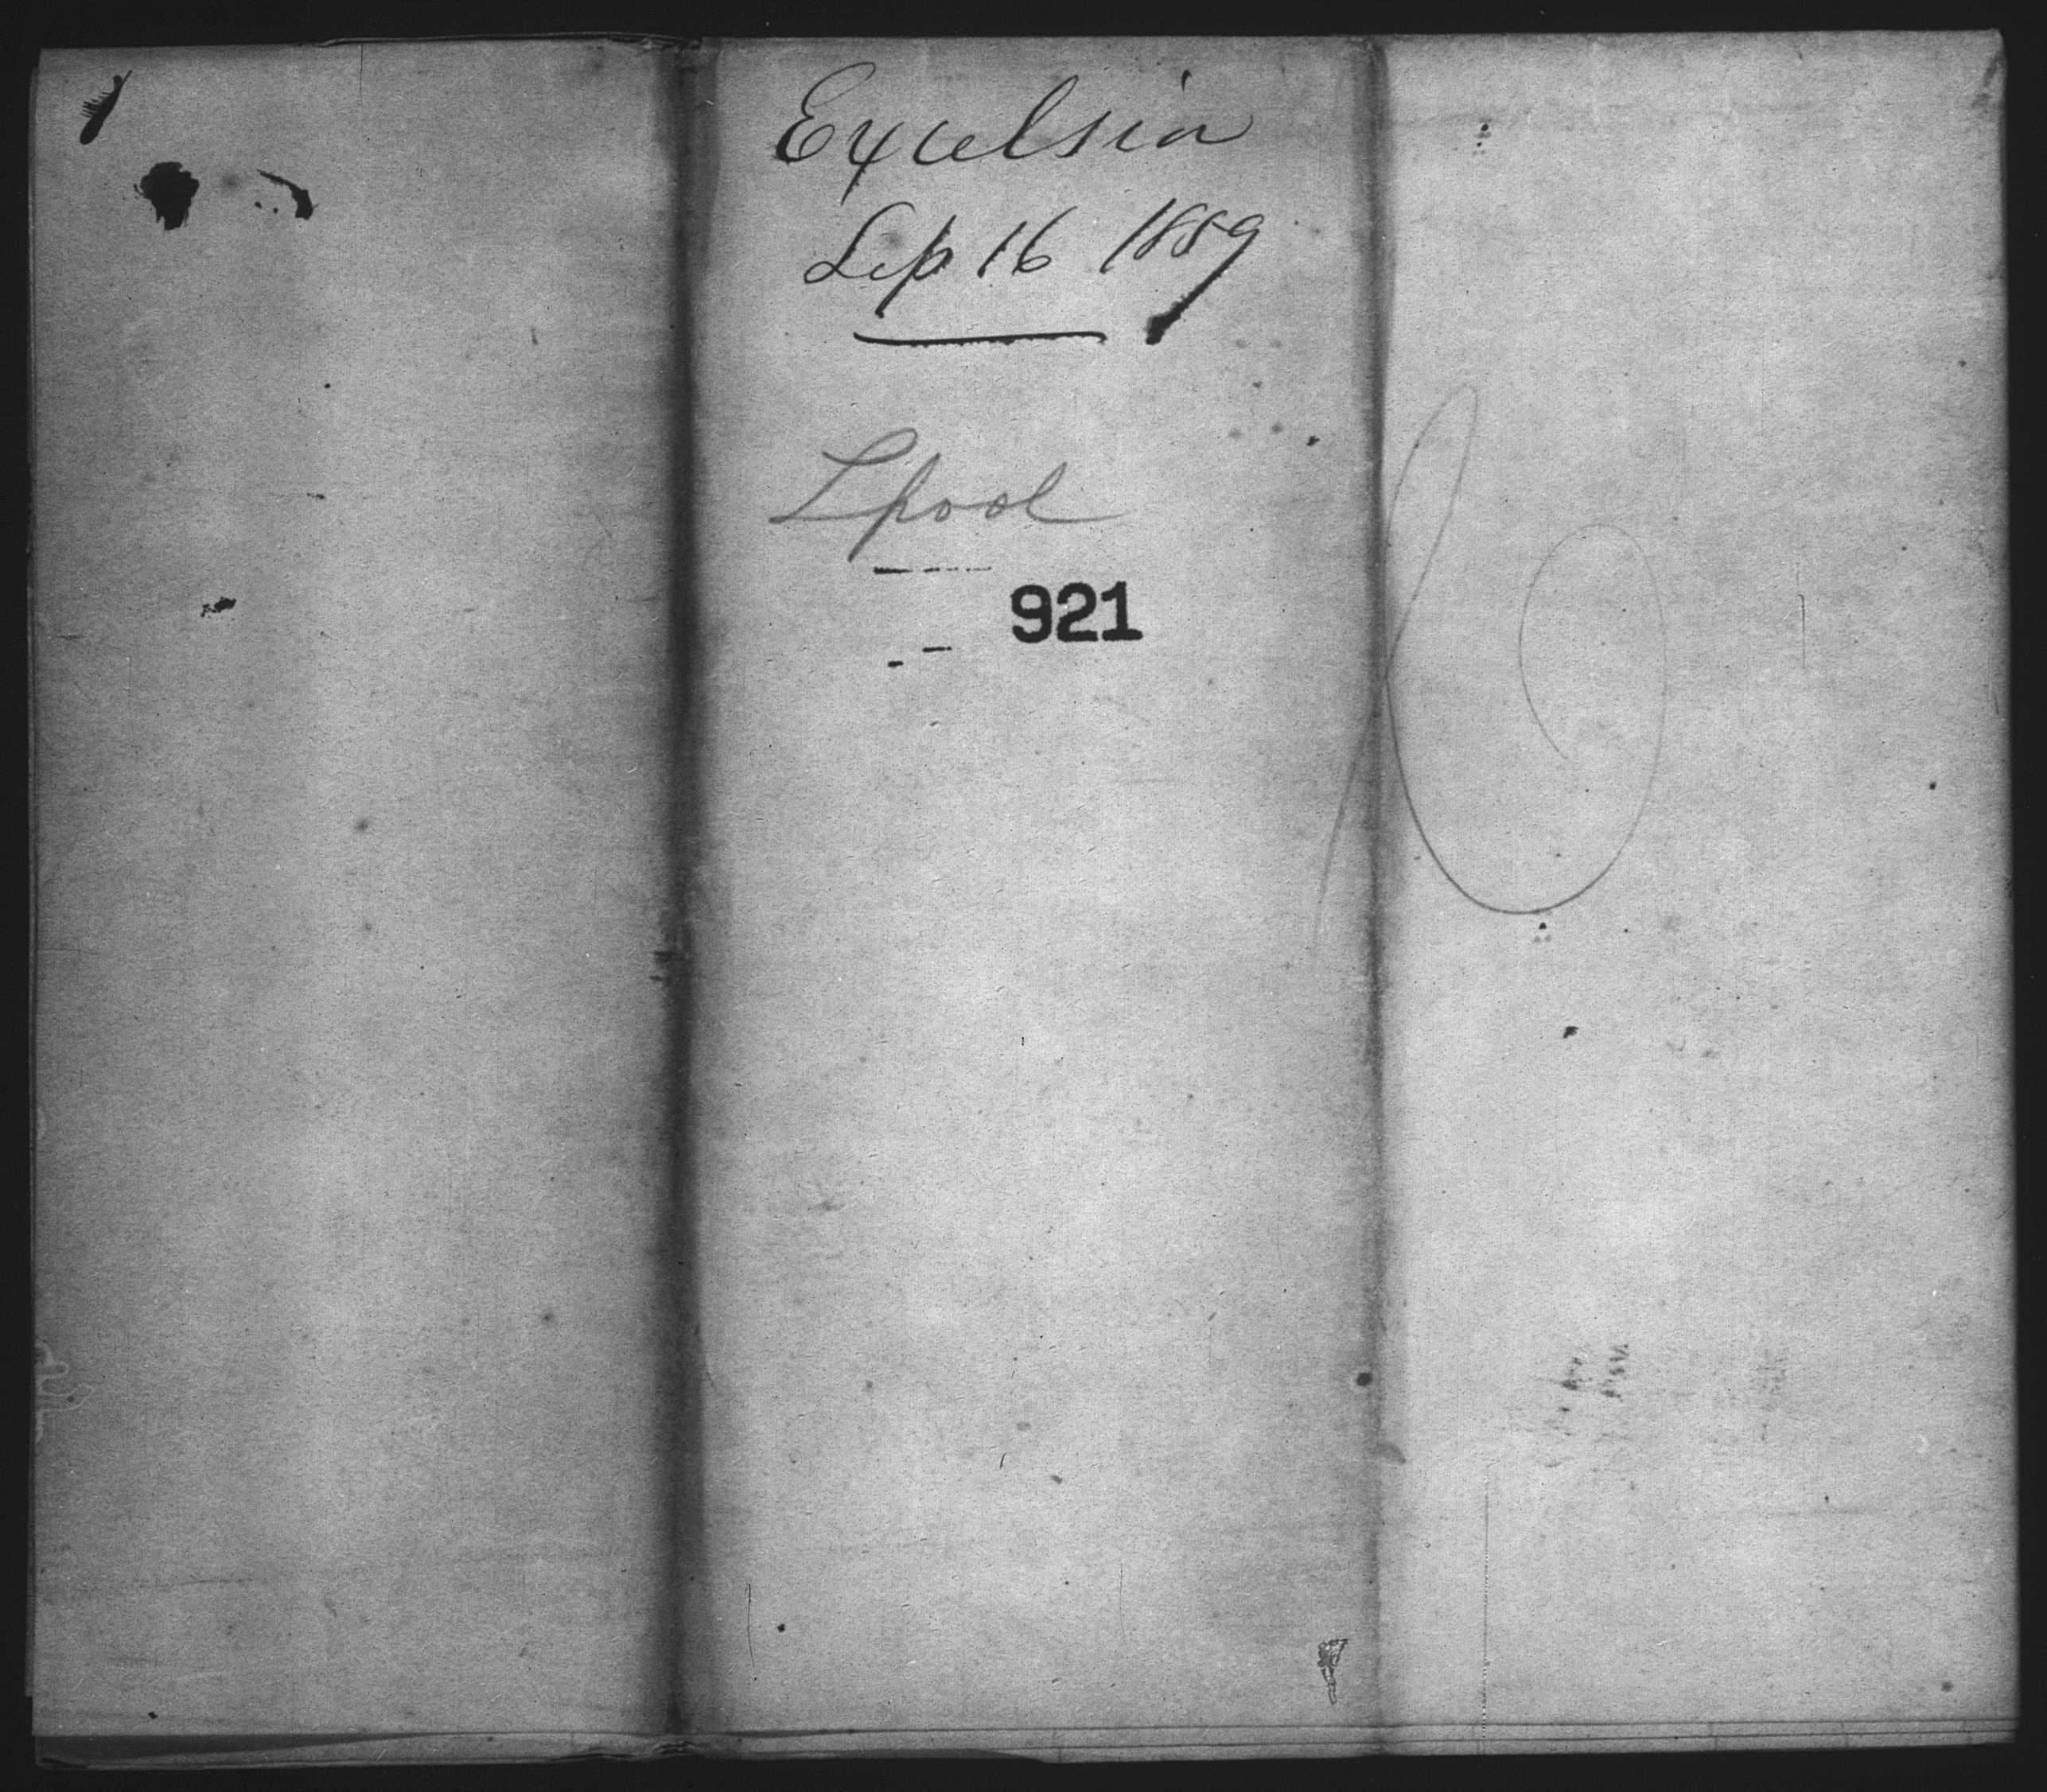 Excelsior
Sep 16 1859
Lpool
921